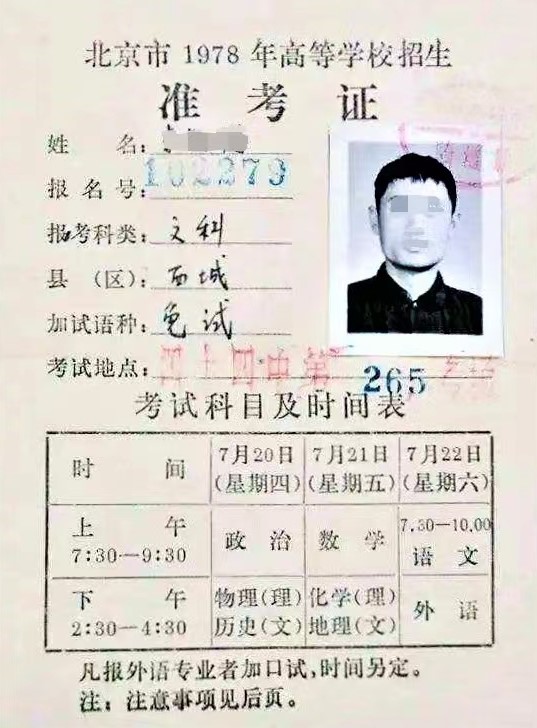 北京市1978年高等学校招生
准考证
姓名：
报名号：102279
报考科类：文科
县（区）：西城
加试语种：免试
考试地点：四十四中第265考场
考试科目及时间表
时间 7月20日（星期四） 7月21日（星期五） 7月22日（星期六）
上午 7:30—9:30 政治 数学 7.30—10.00 语文
下午 2:30—4:30 物理（理） 历史（文） 化学（理） 地理（文） 外语
凡报外语专业者加口试，时间另定。
注：注意事项见后页。